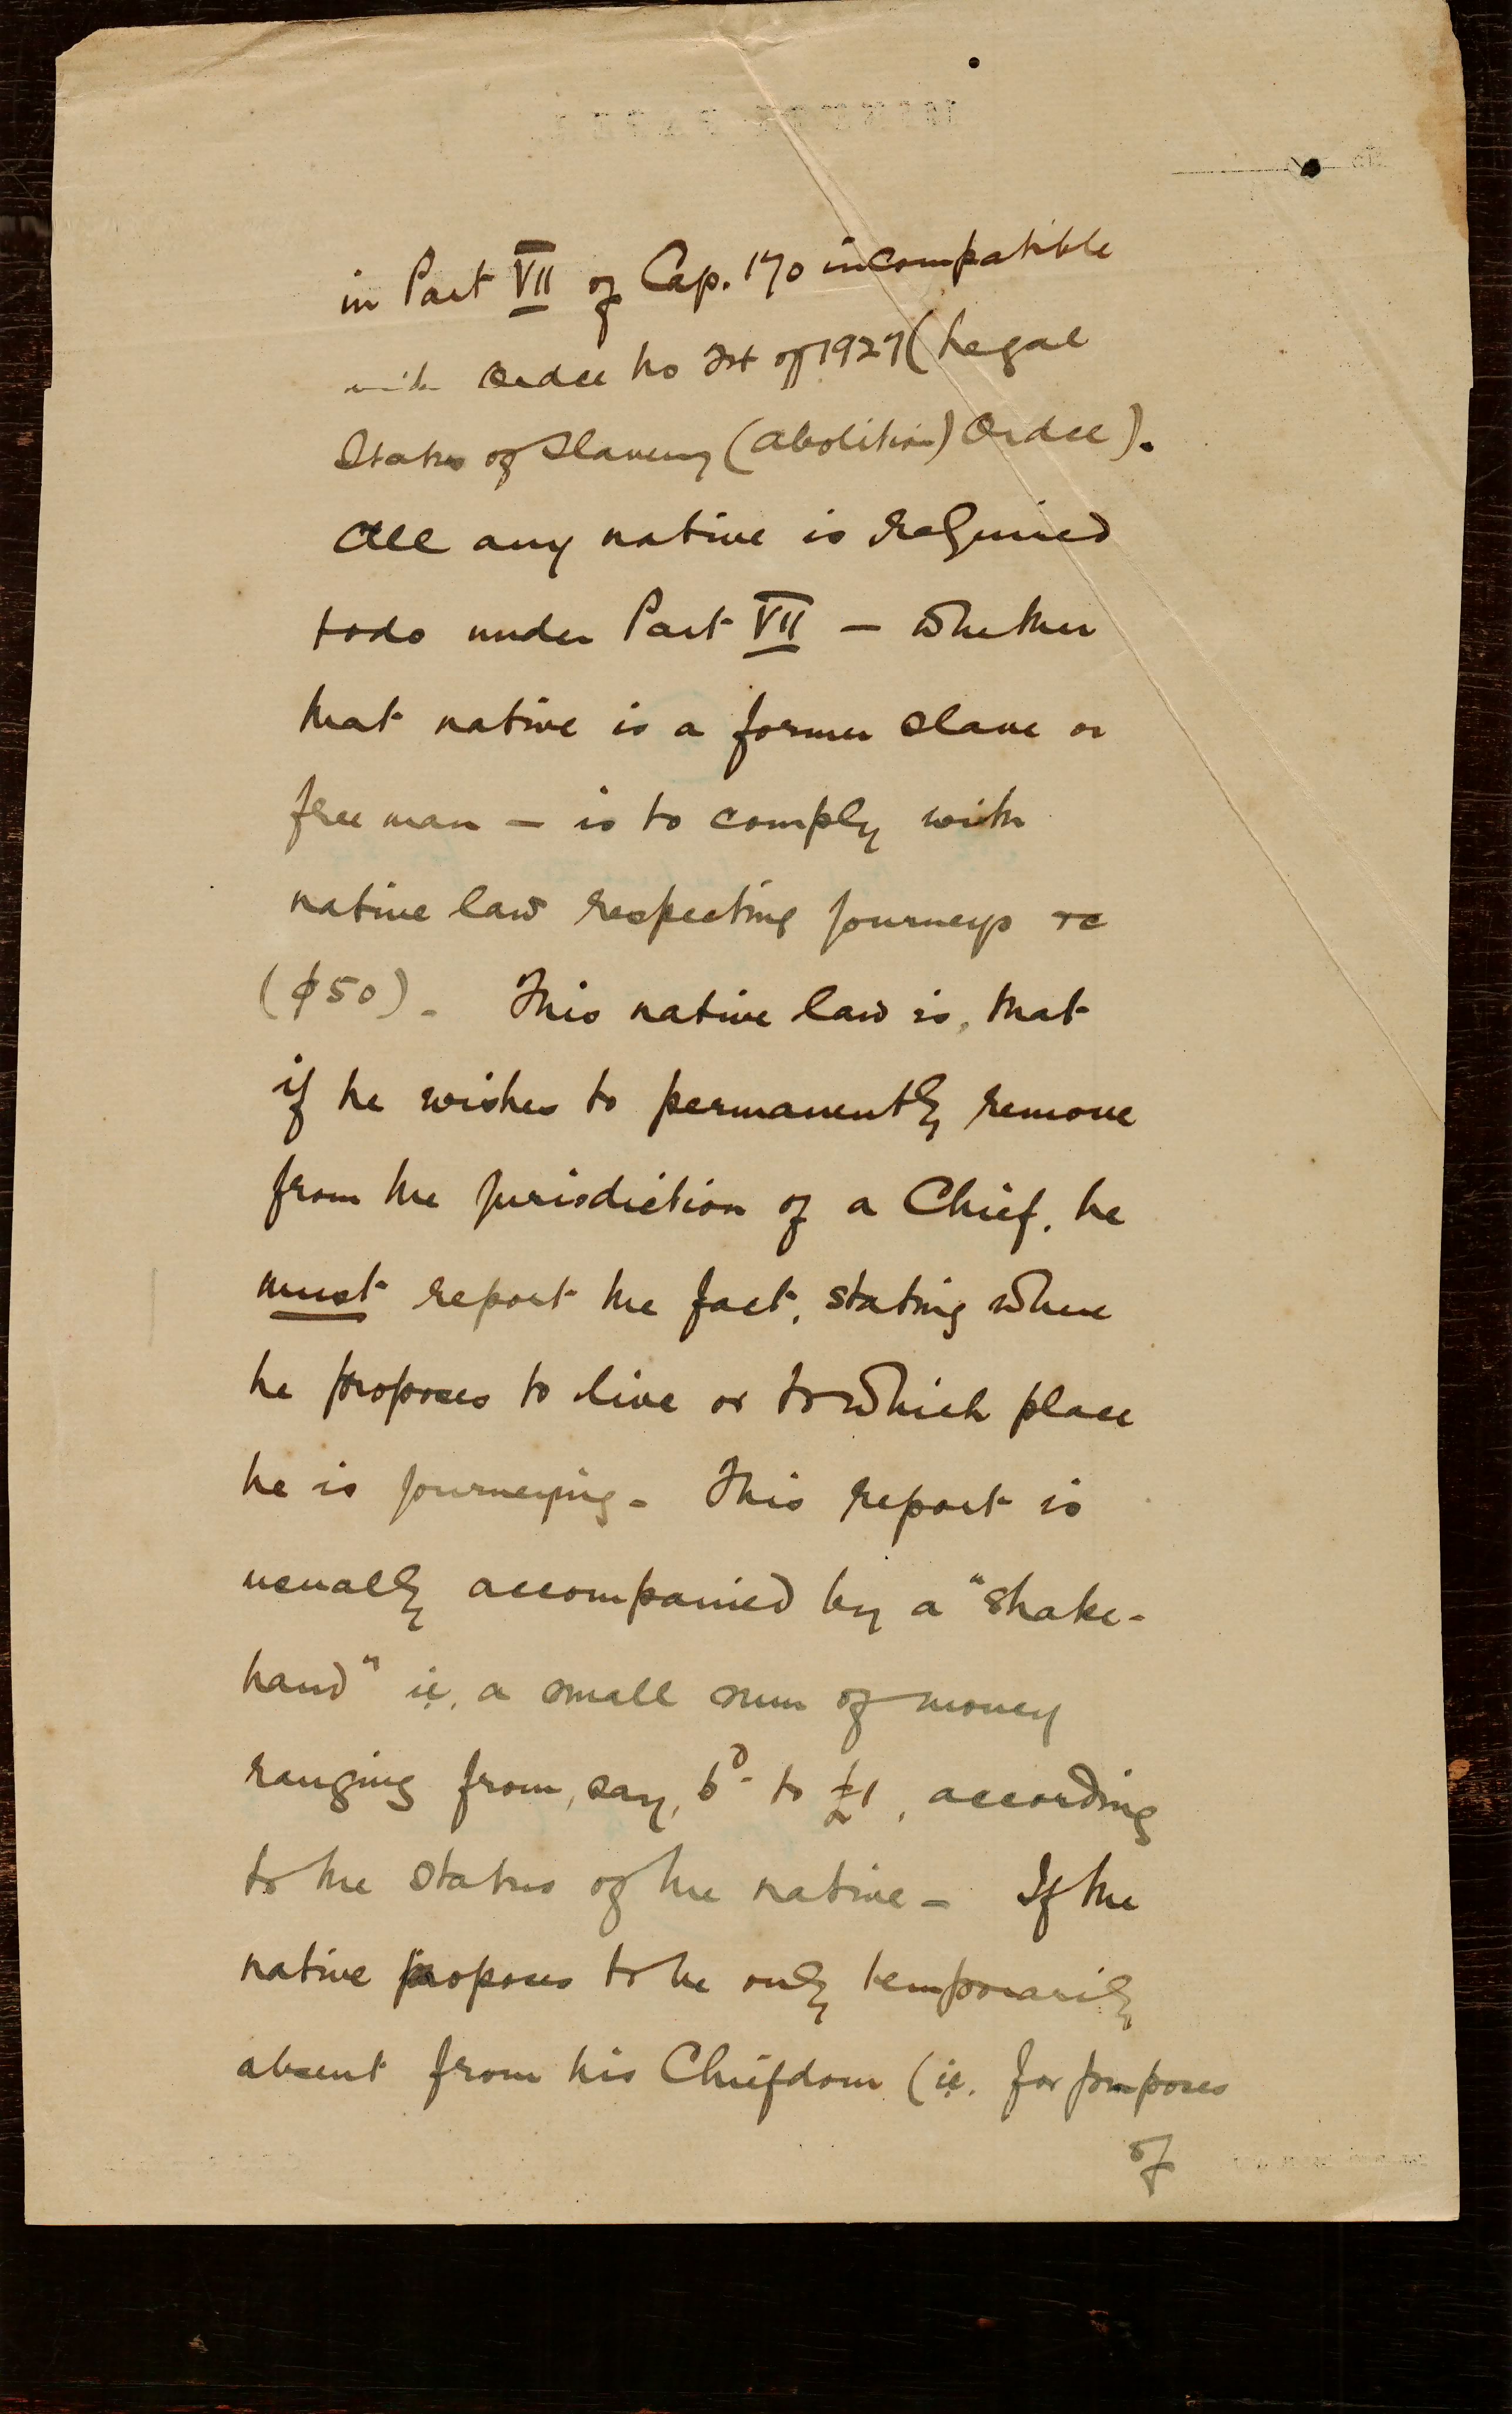 in Part VII of Cap. 170 incompatible
with Ordce No 24 of 1927 (Legal
Status of Slavery (Abolition) Ordce).
All any native is required
to do under Part VII — whether
that native is a former slave or
free man — is to comply with
native law respecting journeys &c
(§50). This native law is, that
if he wishes to permanently remove
from the jurisdiction of a Chief, he
must report the fact, stating where
he proposes to live or to which place
he is journeying. This report is
usually accompanied by a "shake-
hand" ie. a small sum of money
ranging from, say, 6d. to £1, according
to the status of the native. If the
native proposes to be only temporarily
absent from his Chiefdom (ie. for purposes
of